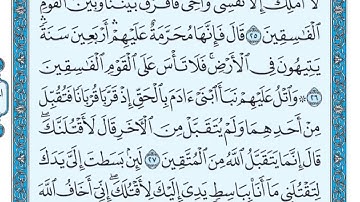 لَآ أَمْلِكُ إِلَّا نَفْسِى وَأَخِى فَٱفْرُقْ بَيْنَنَا وَبَيْنَ ٱلْقَوْمِ
ٱلْفَـٰسِقِينَ ٢٥ قَالَ فَإِنَّهَا مُحَرَّمَةٌ عَلَيْهِمْ أَرْبَعِينَ سَنَةً
يَتِيهُونَ فِى ٱلْأَرْضِ فَلَا تَأْسَ عَلَى ٱلْقَوْمِ ٱلْفَـٰسِقِينَ
٢٦ ۞ وَٱتْلُ عَلَيْهِمْ نَبَأَ ٱبْنَىْ ءَادَمَ بِٱلْحَقِّ إِذْ قَرَّبَا قُرْبَانًا فَتُقُبِّلَ
مِنْ أَحَدِهِمَا وَلَمْ يُتَقَبَّلْ مِنَ ٱلْـَٔاخَرِ قَالَ لَأَقْتُلَنَّكَ ۖ
قَالَ إِنَّمَا يَتَقَبَّلُ ٱللَّهُ مِنَ ٱلْمُتَّقِينَ ٢٧ لَئِنۢ بَسَطتَ إِلَىَّ يَدَكَ
لِتَقْتُلَنِى مَآ أَنَا۠ بِبَاسِطٍ يَدِىَ إِلَيْكَ لِأَقْتُلَكَ ۖ إِنِّىٓ أَخَافُ ٱللَّهَ